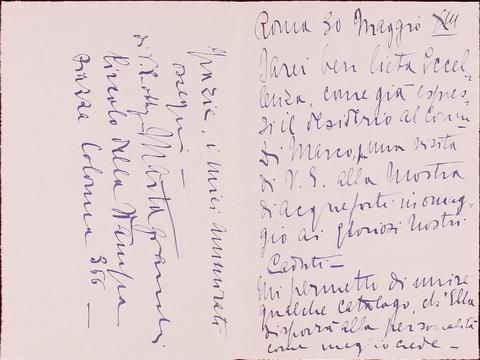 Roma 30 Maggio XIII
Sarei ben lieta Eccel-
lenza, come già espres-
si il desiderio al Comm.
Di Marco, per una visita
di V. E. alla Mostra
di acqueforti in omag-
gio ai gloriosi nostri
Caduti —
Mi permetto di unire
qualche catalogo, ch'Ella
disporrà alla personalità
come meglio crede —
Grazie, i miei rinnovati
ossequi —
di V. E.
Marta
Circolo della Stampa
Piazza Colonna 366 —